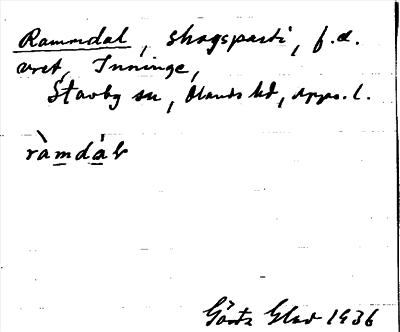 Rammdal, skogsparti, f.d.
vret, Inninge,
Stavby sn, Olands hd, Upps. l.
ràmdál
Gösta Glad 1936